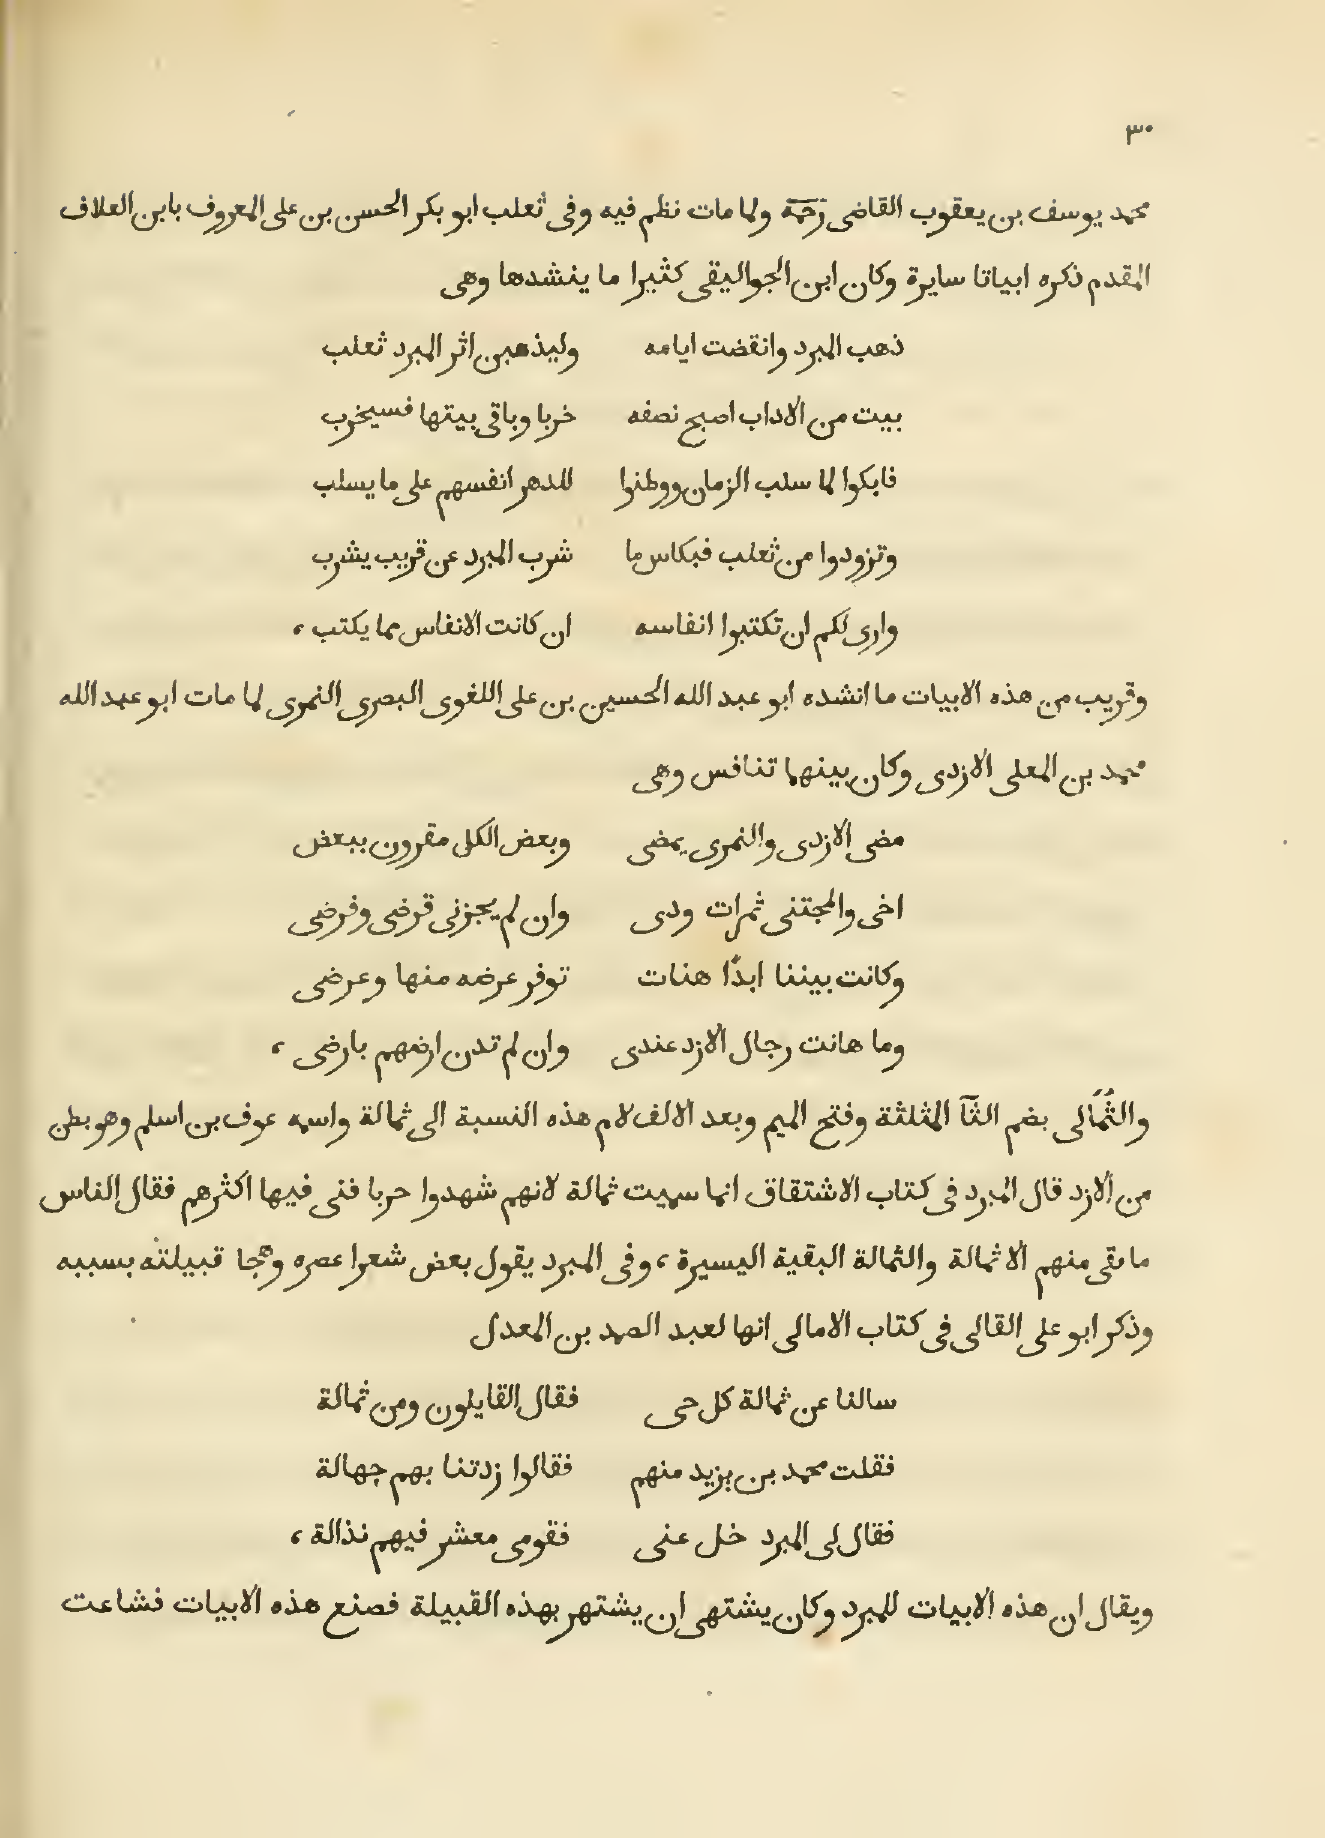 ٣٠
محمد يوسف بن يعقوب القاضى رحمه ولما مات نظم فيه وفى ثعلب ابو بكر الحسن بن على المعروف بابن العلاف
المقدم ذكره ابياتا سايرة وكان ابن الجواليقى كثيرا ما ينشدها وهى
ذهب المبرد وانقضت ايامه وليذهبن اثر المبرد ثعلب
بيت من الاداب اصبح نصفه خربا وباقى بيتها فسيخرب
فابكوا لما سلب الزمان ووطنوا للدهر انفسهم على ما يسلب
وتزودوا من ثعلب فبكاس ما شرب المبرد عن قريب يشرب
وارى لكم ان تكتبوا انفاسه ان كانت الانفاس مما يكتب ،
وقريب من هذه الابيات ما انشده ابو عبد الله الحسين بن على اللغوى البصرى النمرى لما مات ابو عبد الله
محمد بن المعلى الازدى وكان بينهما تنافس وهى
مضى الازدى والنمرى يمضى وبعض الكل مقرون ببعض
اخى والمجتنى ثمرات ودى وان لم يجزنى قرضى وفرضى
وكانت بيننا ابدًا هنات توفر عرضه منها وعرضى
وما هانت رجال الازد عندى وان لم تدن ارضهم بارضى ،
والثُمَالى بضم الثآ المثلثة وفتح الميم وبعد الالف لام هذه النسبة الى ثمالة واسمه عوف بن اسلم وهو بطن
من الازد قال المبرد فى كتاب الاشتقاق انما سميت ثمالة لانهم شهدوا حربا فنى فيها اكثرهم فقال الناس
ما بقى منهم الا ثمالة والثمالة البقية اليسيرة ، وفى المبرد يقول بعض شعرا عصره وهجا قبيلته بسببه
وذكر ابو على القالى فى كتاب الامالى انها لعبد الصمد بن المعدل
سالنا عن ثمالة كل حى فقال القايلون ومن ثمالة
فقلت محمد بن يزيد منهم فقالوا زدتنا بهم جهالة
فقال لى المبرد خل عنى فقومى معشر فيهم نذالة ،
ويقال ان هذه الابيات للمبرد وكان يشتهى ان يشتهر بهذه القبيلة فصنع هذه الابيات فشاعت